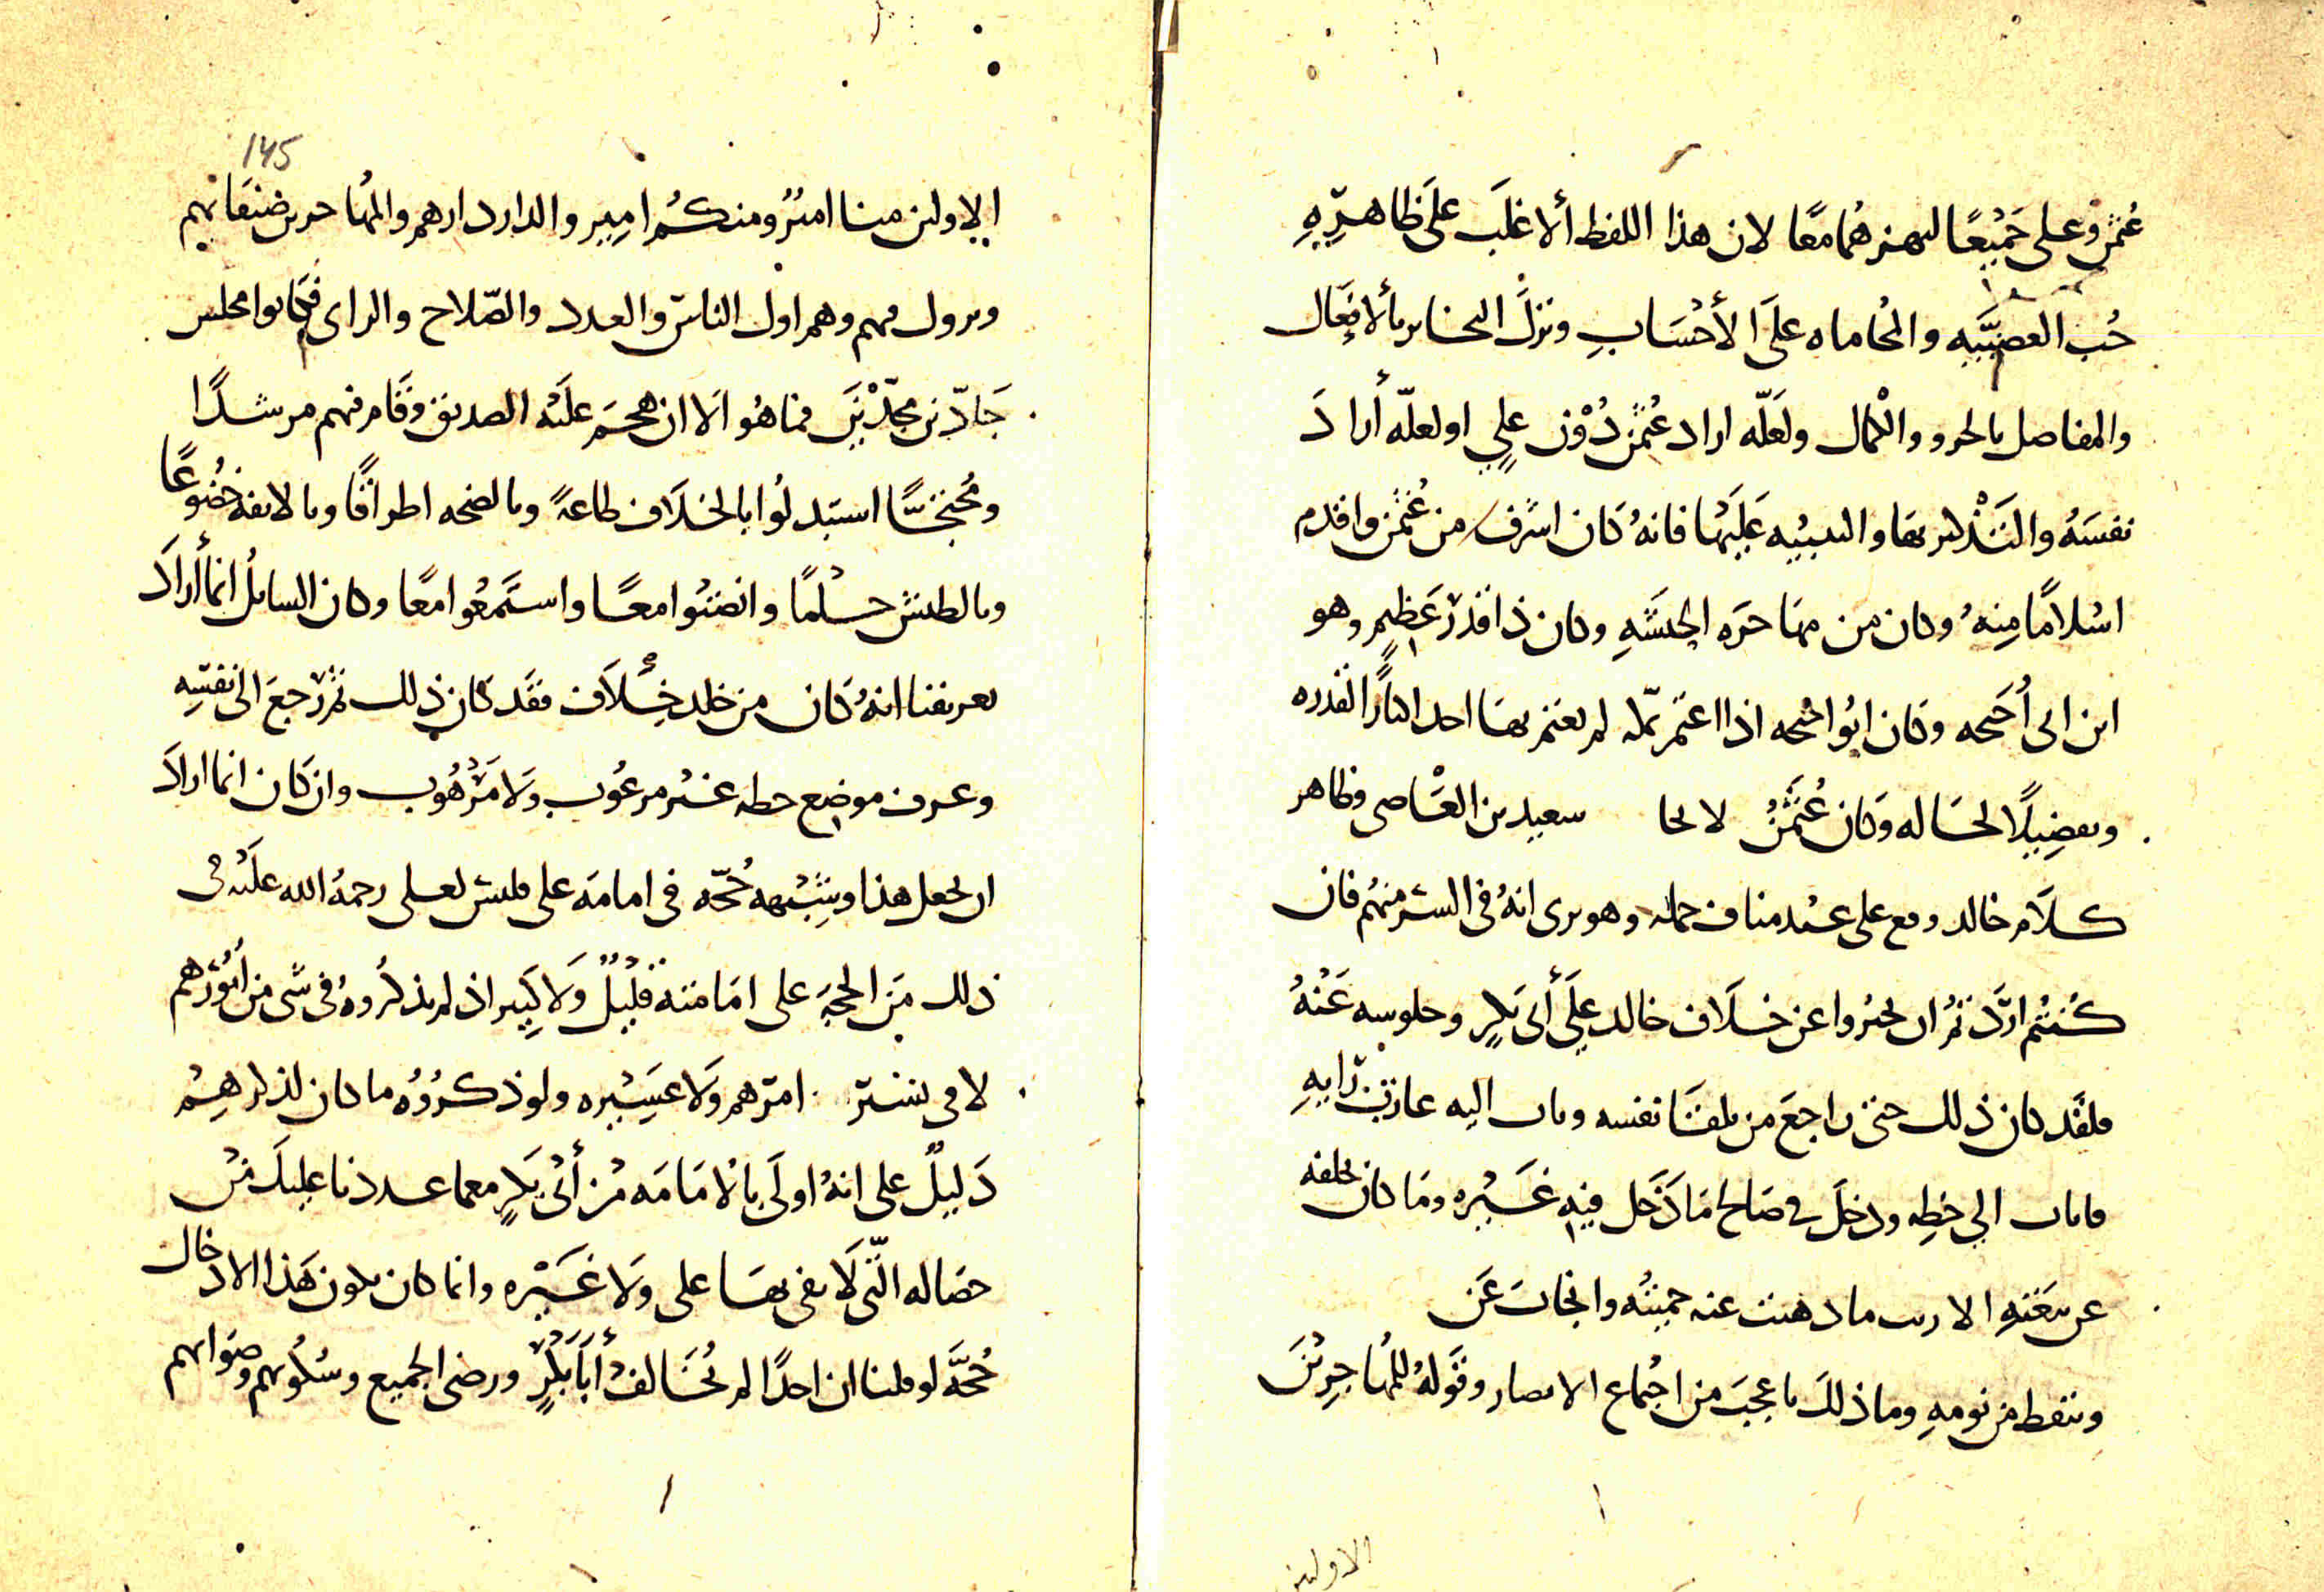 عُثمٰن وعلى جَمْيعًا ليهزهُما معًا لان هذا اللفظ ألاغلَب علَى ظاهرِهِ
حُب العصبيَّيه والمحُاماه علَى الأحْسَابِ وترْكَ التخاير بألافعَال
والمفاصل بالحرو والْكمال ولعَلّه اراد عُثمٰن دُوْن علي او لعلّه أرادَ
نفسَهُ والتَذْكير بها والتنبيْيه عَليَها فانهُ كَان اشرف من عُثمٰن واقدم
اسْلامًا منِهُ وكان من مهاجرَه الحبَشَهِ وكان ذا قدْر عَظِيم وهو
ابن ابى أُحَيحه وكان ابُوا احيحه اذا اعتمّ بمكّه لم يعتم بها احد اكبارًا لقدره
وتفضِيلًا لحَاله وكان عُثمٰنُ لابحا سعيد بن العَاصى وظاهر
كلاَم خالد ومع على عبْد مناف جمله وهو يرى انهُ في السّر منهُم فان
كُنتُم ارَدّتمُ ان تخبرُوا عن خلَاف خالد علَى أبى بَكرٍ وجلوسه عَنْهُ
فلقَد كان ذلك حتى راجعَ من تلقَا نفسه وثاب اليه عازبَ رَايهِ
فاناب الي خطِه ودخلَ في صَالح مَا دَخَل فيِه غَيْره ومَا كان تخلفه
عن بيعَتهِ الا ريث ما ذهبت عنه حميتُه وانجابَ عَن
وتيقظ من نومهِ وما ذلكَ باعجبَ من اجُماع الانصار وقَولهُ للمُهاجرِيْنَ
الاولين
145
الاولين منا اميُر ومنكمُ امِير والدار دارهم والمُهاجرين ضيفانهم
ونزول فيهم وهم اول الناسّ والعدد والصّلاح والراى فكانوا مجلس
جَادّين مجدّيْن فما هُو الَا ان هجَم علَيْه الصديق وقَام فيهم مرشدًا
ومُحتجًّا استبدلُوا بالخلَاف طاعةً وبالضجه اطراقًا وبالانفة خضُوعًا
وبالطيش حلْمًا وانصتُوا معًا واستَمعُوا معًا وكان السايلُ انما أرادَ
تعريفنا انهُ كَان من خلد خِلَاف فقَد كان ذلك ثُم رَجعَ الى نفسِه
وعرف موضِع حطه غيْر مرعُوب ولَا مَرْهُوب وان كَان انما ارادَ
ان يجعل هذا وشِبْهه حُجّه في امامَه على فليس لعلى رحمةُ الله عليْه في
ذلك مَن الحجه على امَامته قليْلٌ ولَا كثِير اذ لم يذكُروهُ في شَى من أمُوْرَهم
لا في يسَيْر امرهم ولَا عَسِيْره ولو ذكرُوُه ما كان لذكرهِمْ
دَليْلٌ على انهُ اولَى بالامَامَه مْن أبْى بَكرٍ مع ما عددنا عليكَ مْن
خصَاله الّتى لَا يفى بهَا على ولَا غَيْره وانما كان يكون هَذا الادخال
حُجَّه لو قلنا ان احدًا لم يُخَالفْ أبَا بَكْرٍ ورضى الجميع وسُكُوتهم وصَوابهم